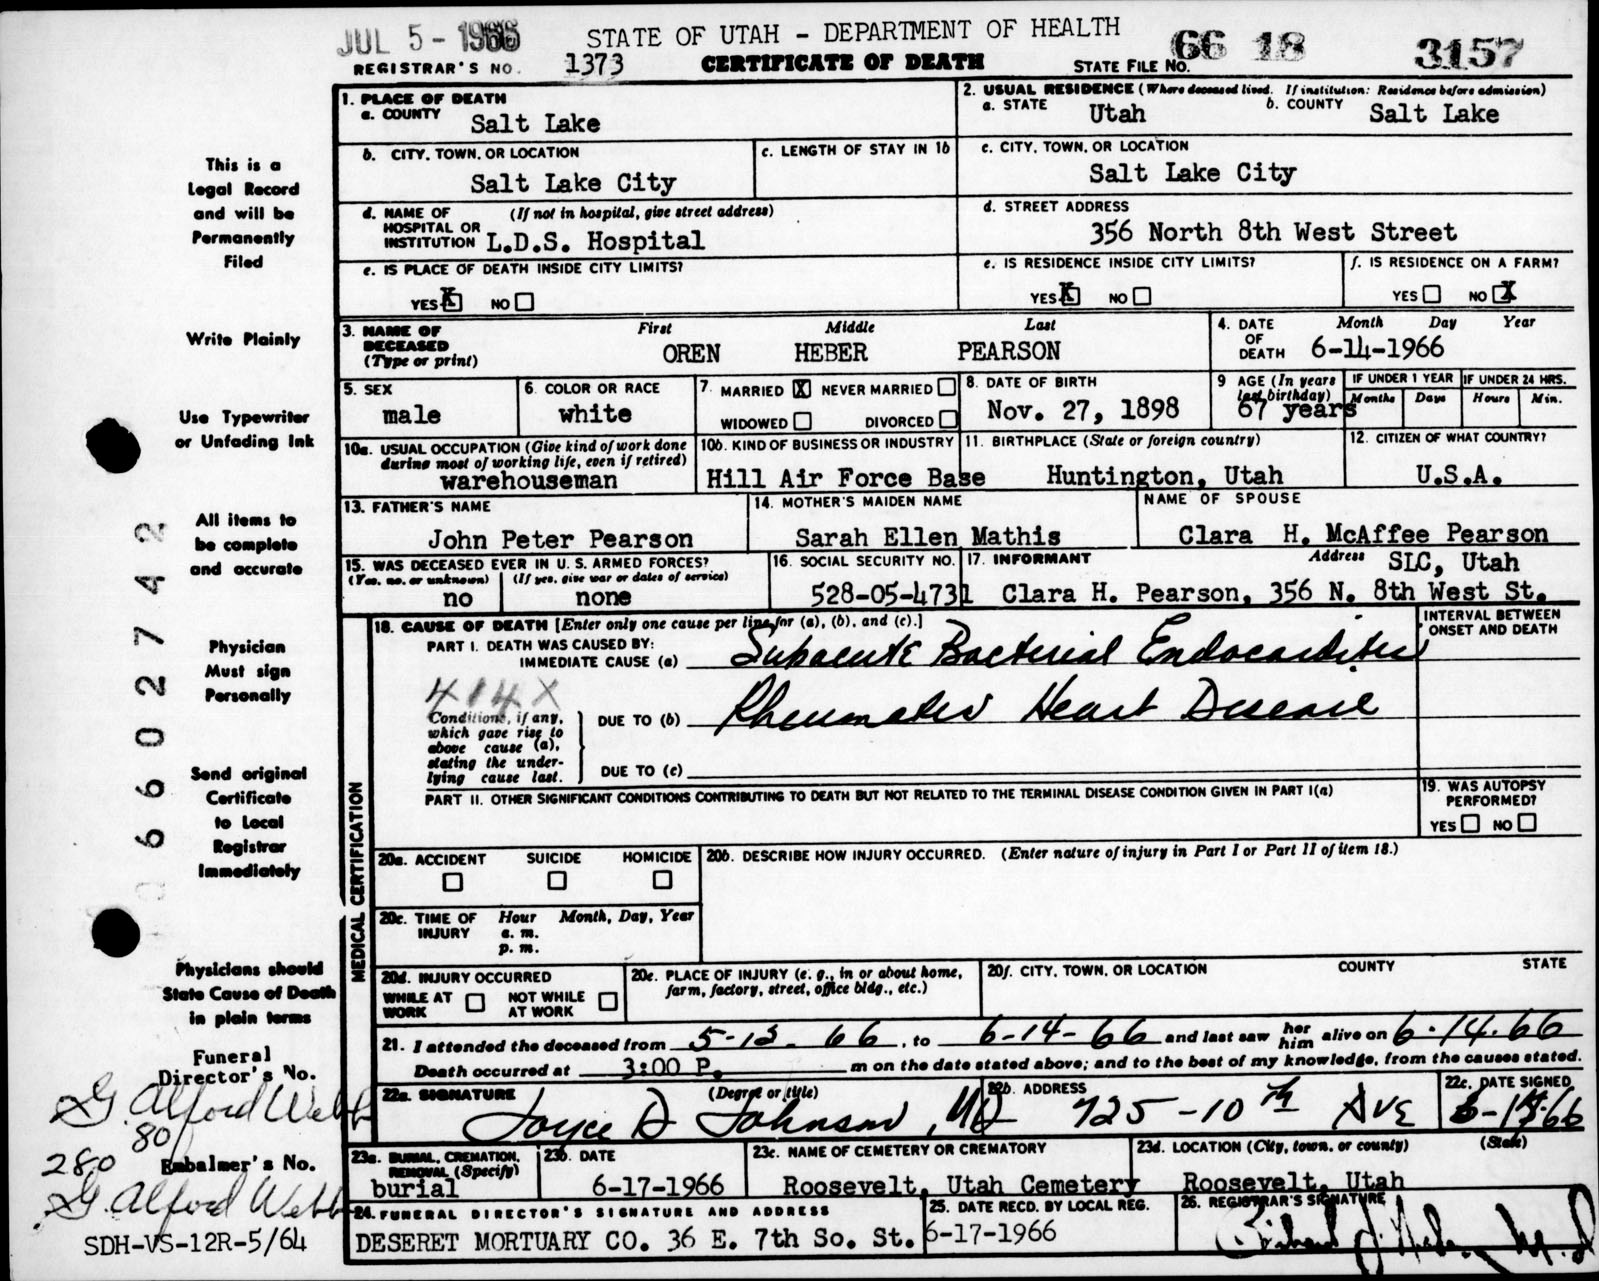 JUL 5 - 1966
STATE OF UTAH - DEPARTMENT OF HEALTH
66 18 3157
REGISTRAR'S NO. 1373 CERTIFICATE OF DEATH STATE FILE NO.
This is a
Legal Record
and will be
Permanently
Filed
Write Plainly
Use Typewriter
or Unfading Ink
All items to
be complete
and accurate
Physician
Must sign
Personally
Send original
Certificate
to Local
Registrar
Immediately
Physicians should
State Cause of Death
in plain terms
Funeral
Director's No.
G. Alford Webb
80
280 Embalmer's No.
G. Alford Webb
SDH-VS-12R-5/64
6602742
1. PLACE OF DEATH
a. COUNTY Salt Lake
2. USUAL RESIDENCE (Where deceased lived. If institution: Residence before admission)
a. STATE Utah b. COUNTY Salt Lake
b. CITY, TOWN, OR LOCATION Salt Lake City
c. LENGTH OF STAY IN 1b
c. CITY, TOWN, OR LOCATION
Salt Lake City
d. NAME OF HOSPITAL OR INSTITUTION (If not in hospital, give street address)
L.D.S. Hospital
d. STREET ADDRESS
356 North 8th West Street
e. IS PLACE OF DEATH INSIDE CITY LIMITS?
YES X NO
e. IS RESIDENCE INSIDE CITY LIMITS?
YES X NO
f. IS RESIDENCE ON A FARM?
YES NO X
3. NAME OF DECEASED (Type or print)
First Middle Last
OREN HEBER PEARSON
4. DATE OF DEATH Month Day Year
6-14-1966
5. SEX
male
6. COLOR OR RACE
white
7. MARRIED X NEVER MARRIED
WIDOWED DIVORCED
8. DATE OF BIRTH
Nov. 27, 1898
9 AGE (In years last birthday)
67 years
IF UNDER 1 YEAR IF UNDER 24 HRS.
Months Days Hours Min.
10a. USUAL OCCUPATION (Give kind of work done during most of working life, even if retired)
warehouseman
10b. KIND OF BUSINESS OR INDUSTRY
Hill Air Force Base
11. BIRTHPLACE (State or foreign country)
Huntington, Utah
12. CITIZEN OF WHAT COUNTRY?
U.S.A.
13. FATHER'S NAME
John Peter Pearson
14. MOTHER'S MAIDEN NAME
Sarah Ellen Mathis
NAME OF SPOUSE
Clara H. McAffee Pearson
15. WAS DECEASED EVER IN U. S. ARMED FORCES?
(Yes, no, or unknown) (If yes, give war or dates of service)
no none
16. SOCIAL SECURITY NO.
528-05-4731
17. INFORMANT Address SLC, Utah
Clara H. Pearson, 356 N. 8th West St.
18. CAUSE OF DEATH [Enter only one cause per line for (a), (b), and (c).]
INTERVAL BETWEEN ONSET AND DEATH
PART I. DEATH WAS CAUSED BY:
IMMEDIATE CAUSE (a) Subacute Bacterial Endocarditis
414X
Conditions, if any, which gave rise to above cause (a), stating the underlying cause last.
DUE TO (b) Rheumatic Heart Disease
DUE TO (c)
PART II. OTHER SIGNIFICANT CONDITIONS CONTRIBUTING TO DEATH BUT NOT RELATED TO THE TERMINAL DISEASE CONDITION GIVEN IN PART I(a)
19. WAS AUTOPSY PERFORMED?
YES NO
MEDICAL CERTIFICATION
20a. ACCIDENT SUICIDE HOMICIDE
20b. DESCRIBE HOW INJURY OCCURRED. (Enter nature of injury in Part I or Part II of item 18.)
20c. TIME OF INJURY Hour Month, Day, Year
a. m.
p. m.
20d. INJURY OCCURRED
WHILE AT WORK NOT WHILE AT WORK
20e. PLACE OF INJURY (e. g., in or about home, farm, factory, street, office bldg., etc.)
20f. CITY, TOWN, OR LOCATION COUNTY STATE
21. I attended the deceased from 5-12-66, to 6-14-66 and last saw her him alive on 6.14.66
Death occurred at 3:00 P. m on the date stated above; and to the best of my knowledge, from the causes stated.
22a. SIGNATURE (Degree or title)
Joyce D Johnson, MD
22b. ADDRESS
725 - 10th Ave
22c. DATE SIGNED
23a. BURIAL, CREMATION, REMOVAL (Specify)
burial
23b. DATE
6-17-1966
23c. NAME OF CEMETERY OR CREMATORY
Roosevelt, Utah Cemetery
23d. LOCATION (City, town, or county) (State)
Roosevelt, Utah
24. FUNERAL DIRECTOR'S SIGNATURE AND ADDRESS
DESERET MORTUARY CO. 36 E. 7th So. St.
25. DATE RECD. BY LOCAL REG.
6-17-1966
26. REGISTRAR'S SIGNATURE